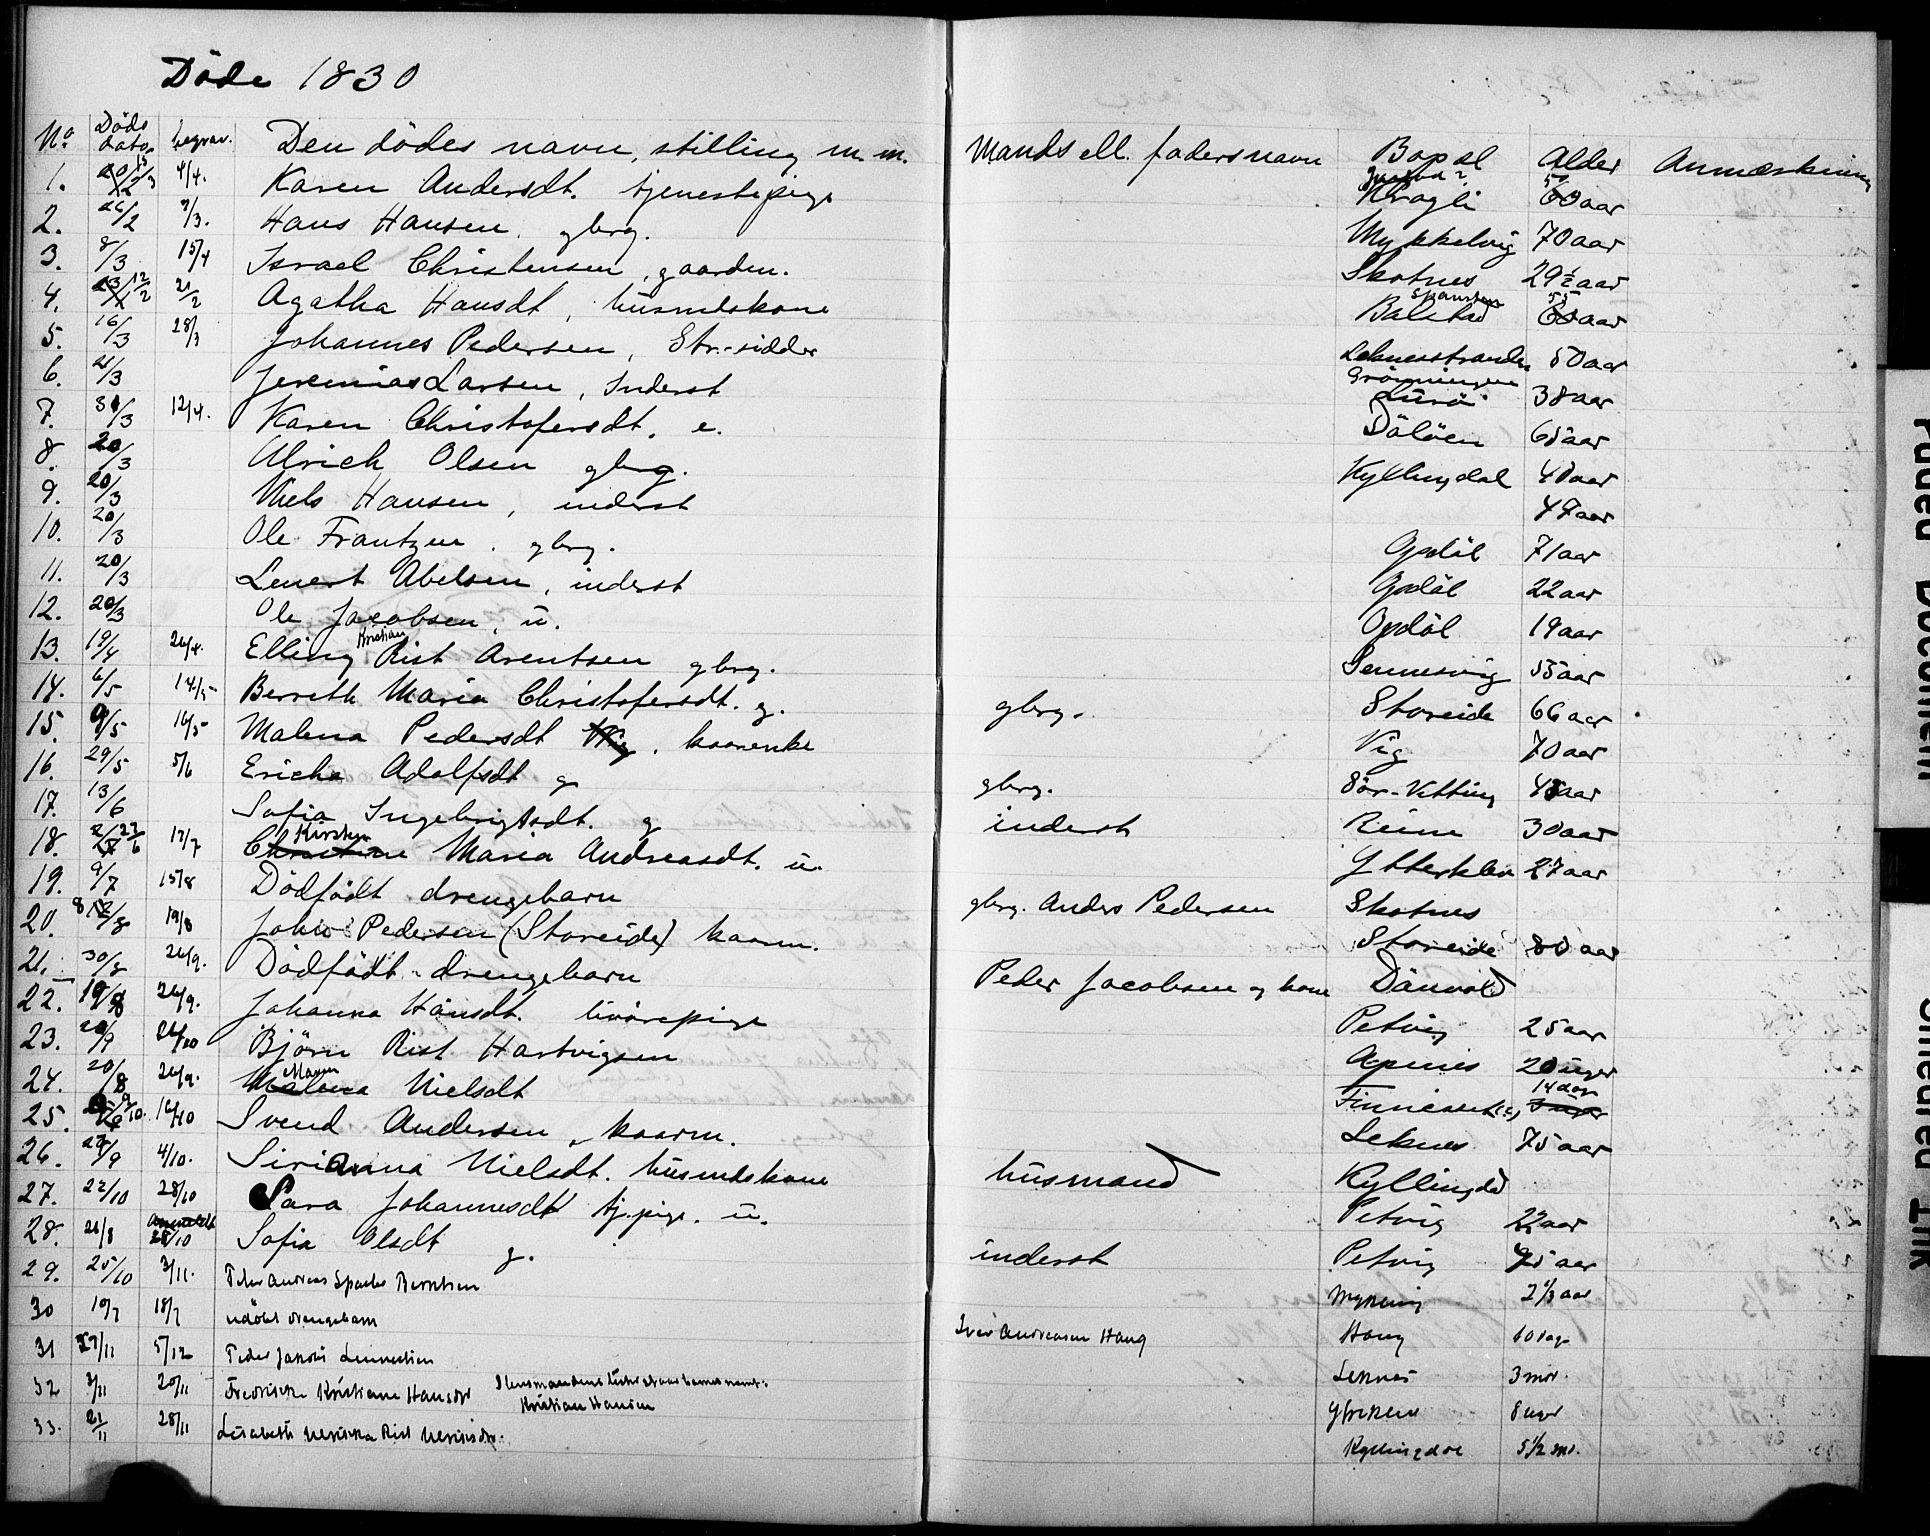 Døde 1830
No Døds dato begrav. Den dødes navn, stilling m. m. Mands ell. faders navn Bopæl Alder Anmærkning
1. 4/4. Karen Andersdt. tjenestepige Kragli 50 aar
2. 26/2 7/3. Hans Hansen, gbrg. Mykkelvig 70 aar
3. 8/3 15/4 Israel Christensen, gaardm. Skotnes 29½ aar
4. 12/2 21/2 Agatha Hansdt, husmdskone Balstad 55 aar
5. 16/3 28/3 Johannes Pedersen, Str.-sidder Leknesstranden 50 aar
6. 21/3 Jeremias Larsen, Inderst Lurø 38 aar
7. 31/3 12/4. Karen Christofersdt. e. Døløen 65 aar
8. 20/3 Ulrich Olsen gbrg. Kyllingdal 40 aar
9. 20/3 Niels Hansen, inderst 47 aar
10. 20/3 Ole Frantzen, gbrg. Opdøl 71 aar
11. 20/3 Lenert Abelsen, inderst Opdøl 22 aar
12. 20/3 Ole Jacobsen, u. Opdøl 19 aar
13. 19/4 26/4. Elling Kristian Rist Arentsen gbrg. Sennesvig 55 aar
14. 6/5 14/5 Berreth Maria Christofersdt. g. gbrg. Storeide 66 aar
15. 9/5 16/5 Malena Pedersdt Vig, kaarenke Vig 70 aar
16. 29/5 5/6 Ericka Adolfsdt g gbrg. Sør-Vitting 48 aar
17. 13/6 Sofia Ingebrigtsdt. g inderst Reine 30 aar
18. 27/6 12/7 Christine Kirsten Maria Andreasdt. u. Ytterklev 27 aar
19. 9/7 15/8 Dødfødt drengebarn gbrg. Anders Pedersen Skotnes
20. 19/8 Johns Pedersen (Storeide) kaarm. Storeide 80 aar
21. 30/8 26/9. Dødfødt drengebarn Peder Jacobsen og kone Dønvold
22. 19/8 26/9. Johanna Hansdt. Petvig 25 aar
23. 20/9 24/10 Bjørn Rist Hartvigsen Apnes 20 uger
24. 20/8 26/9. Malena Maren Nielsdt 14 dage
25. 9/10. 16/10 Svend Andersen, kaarm. Leknes 75 aar
26. 27/9 4/10. Sirianna Nielsdt. husmdskone husmand Kyllingdal
27. 22/10 28/10 Sara Johannesdt tj.pige. u. Petvig 22 aar
28. 26/8 28/10 Sofia Olsdt g. inderst Petvig 95 aar
29. 25/10 3/11. Peder Andreas Sparks Berntsen 2 1/3 aar
30 10/7 18/7 udøbt drengebarn Iver Andreasen Haug Haug 10 dage
31 27/11 5/12 Peder Jakob Lennertsen Leknes 3 mdr.
32 3/11 20/11 Fredrikke Kristiane Hansdr Kristian Hansen 8 uger
33. 21/11 28/11 Lisabeth Ulrikka Rist Ulriksdr. Kyllingdal 5 1/2 md.